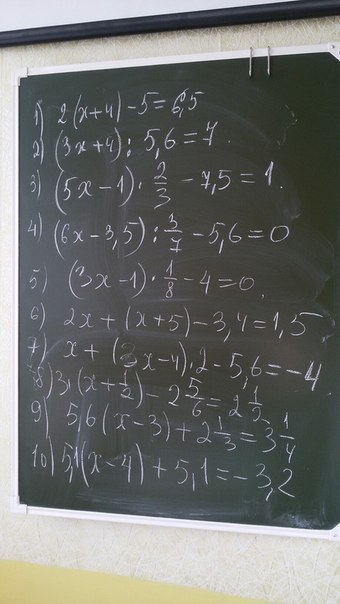 1) 2(x+4)-5=6,5
2) (3x+4):5,6=7.
3) (5x-1)·2/3-7,5=1.
4) (6x-3,5):3/7-5,6=0
5) (3x-1)·1/8-4=0.
6) 2x+(x+5)-3,4=1,5
7) x+(3x-4)·2-5,6=-4
8) (x+1/2)-2 5/6=2 1/2
9) 5,6(x-3)+2 1/3=3 1/4
10) 5,1(x-4)+5,1=-3,2